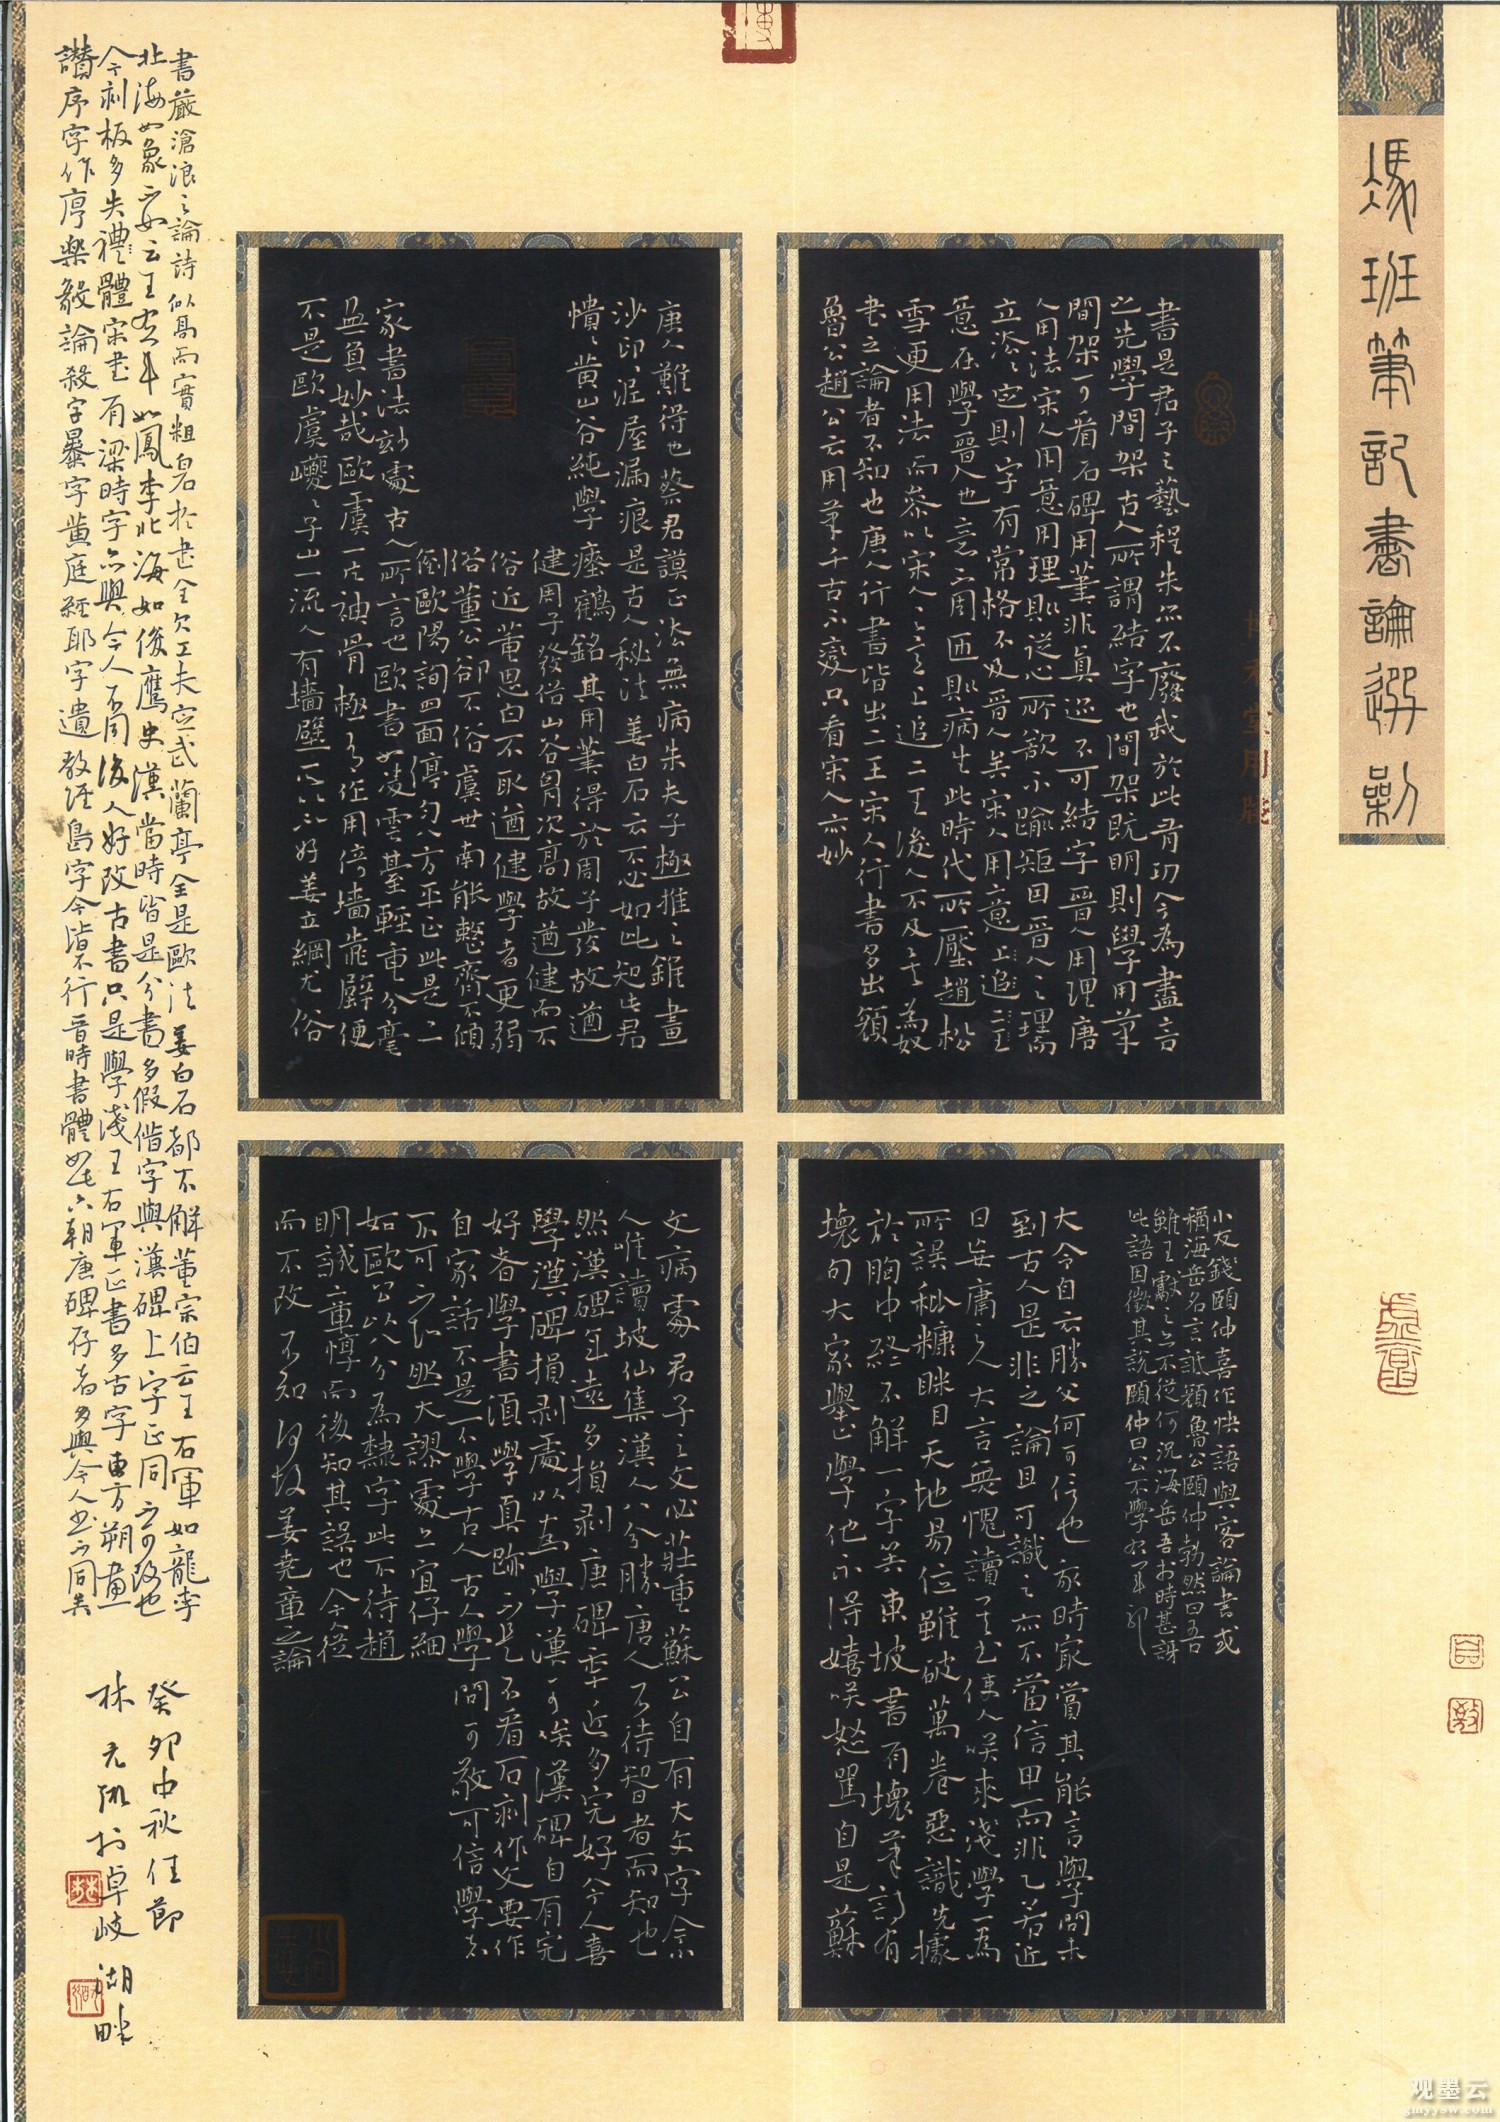 馮班筆記書論選
書是君子之藝程朱亦不廢我於此有功今為盡言
之先學間架古人所謂結字也間架既明則學用筆
間架可看石碑用筆非真迹不可結字晉人用理唐
人用法宋人用意用理則從心所欲不踰矩因晉人之理而
立法法定則字有常格不及晉人矣宋人用意上追二王
意在學晉人也意不周匝則病生此時代所壓趙松
雪更用法而參以宋人之意上追二王後人不及矣為奴
書之論者不知也唐人行書皆出二王宋人行書多出顏
魯公趙公云用筆千古不變只看宋人亦妙
唐人難得也蔡君謨正法無病朱夫子極推之錐畫
沙印印泥屋漏痕是古人秘法姜白石云不必如此知此君
憒憒黃山谷純學瘞鶴銘其用筆得於周子發故遒
健周子發俗山谷胸次高故遒健而不
俗近董思白不取遒健學者更弱
俗董公卻不俗虞世南能整齊不傾
倒歐陽詢四面停勻八方平正此是二
家書法妙處古人所言也歐書如凌雲臺輕重分毫
無負妙哉歐虞一片神骨極有作用倚墻靠壁便
不是歐虞巙巙子山一流人有墻壁所以不好姜立綱尤俗
小友錢頤仲喜作快語與客論書或
稱海岳名言詆顏魯公頤仲勃然曰吾
雖王獻之亦不從何況海岳吾於時甚訝
此語因徵其說頤仲曰公不學
大令自云勝父何可信也家時宜賞其能言學問未
到古人是非之論且可識之亦不當信甲而非乙若近
日妄庸之人大言無愧讀其書使人咲來淺學一為
所誤秕糠眯目天地易位雖破萬卷惡識先據
於胸中終不解一字矣東坡書有壞筆詩有
壞句大家舉止學他不得嬉咲怒罵自是蘇
文病處君子之文必莊重蘇公自有大文字余
人唯讀坡仙集漢人八分勝唐人不待智者而知也
然漢碑年遠多損剥唐碑年近多完好今人喜
學漢碑損剥處以為學漢可咲漢碑自有完
好者學書須學真跡只是不看石刻作文要作
自家話不是不學古人古人學問可敬可信學者
不可不知然大謬處亦宜仔細
如歐公以八分為隸字此不待趙
明誠董惇而後知其誤也今人從
而不改不知何故姜堯章之論
書嚴滄浪之論詩似高而實粗白石於書全欠工夫定武蘭亭全是歐法姜白石都不解董宗伯云王右軍如龍李
北海如象不如云王右軍如鳳李北海如俊鷹史漢當時皆是分書多假借字與漢碑上字正同不可改也
今刻板多失禮體宋書有梁時字亦與今人不同後人好改古書只是學淺王右軍正書多古字東方朔畫
讚序字作厚樂毅論殺字暴字黃庭經耶字遺教經島字今皆不行晉時書體如此六朝唐碑存者多與今人書不同矣
癸卯中秋佳節
林元於卓岐湖畔
观墨云
gmyysw.com